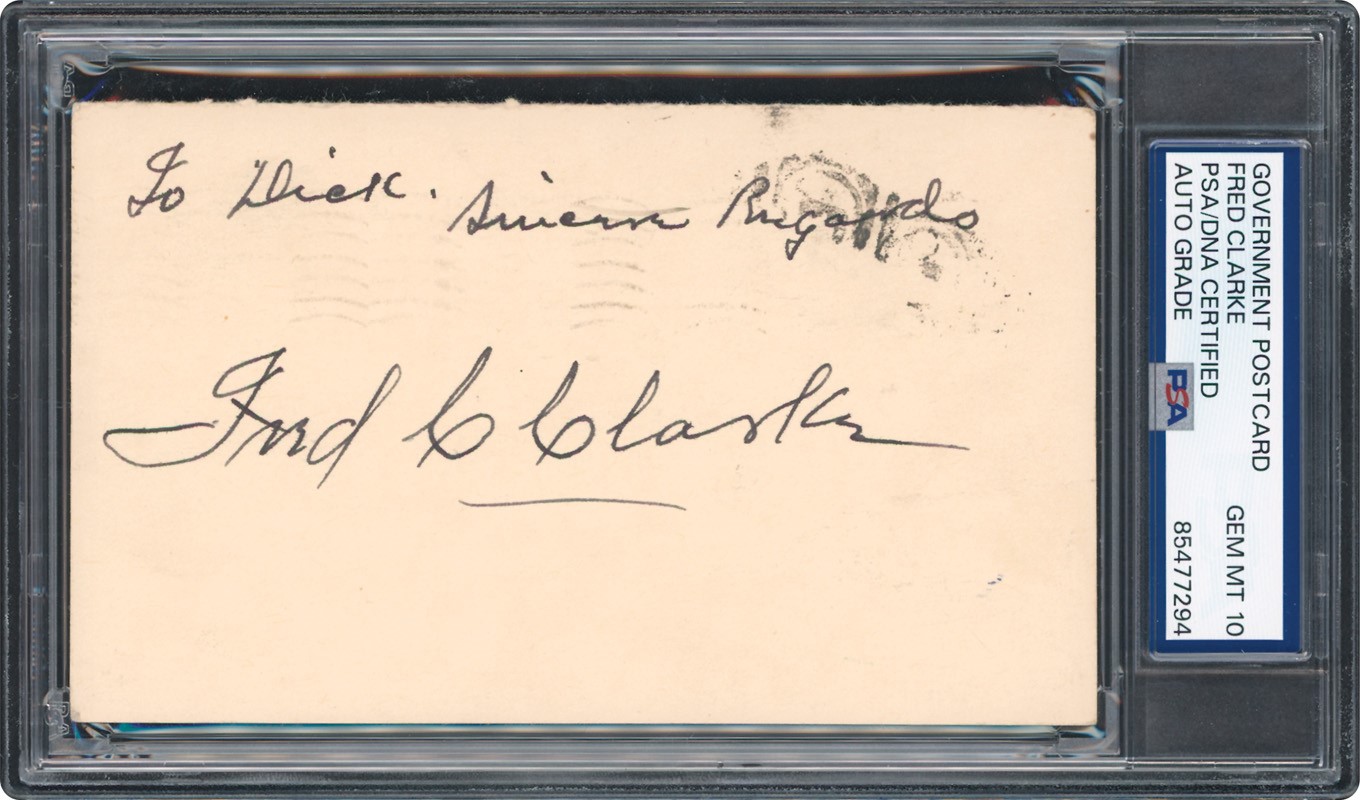 To Dick. Sincere Regards
Fred C Clarke
GOVERNMENT POSTCARD
FRED CLARKE GEM MT 10
PSA/DNA CERTIFIED
AUTO GRADE 85477294
PSA